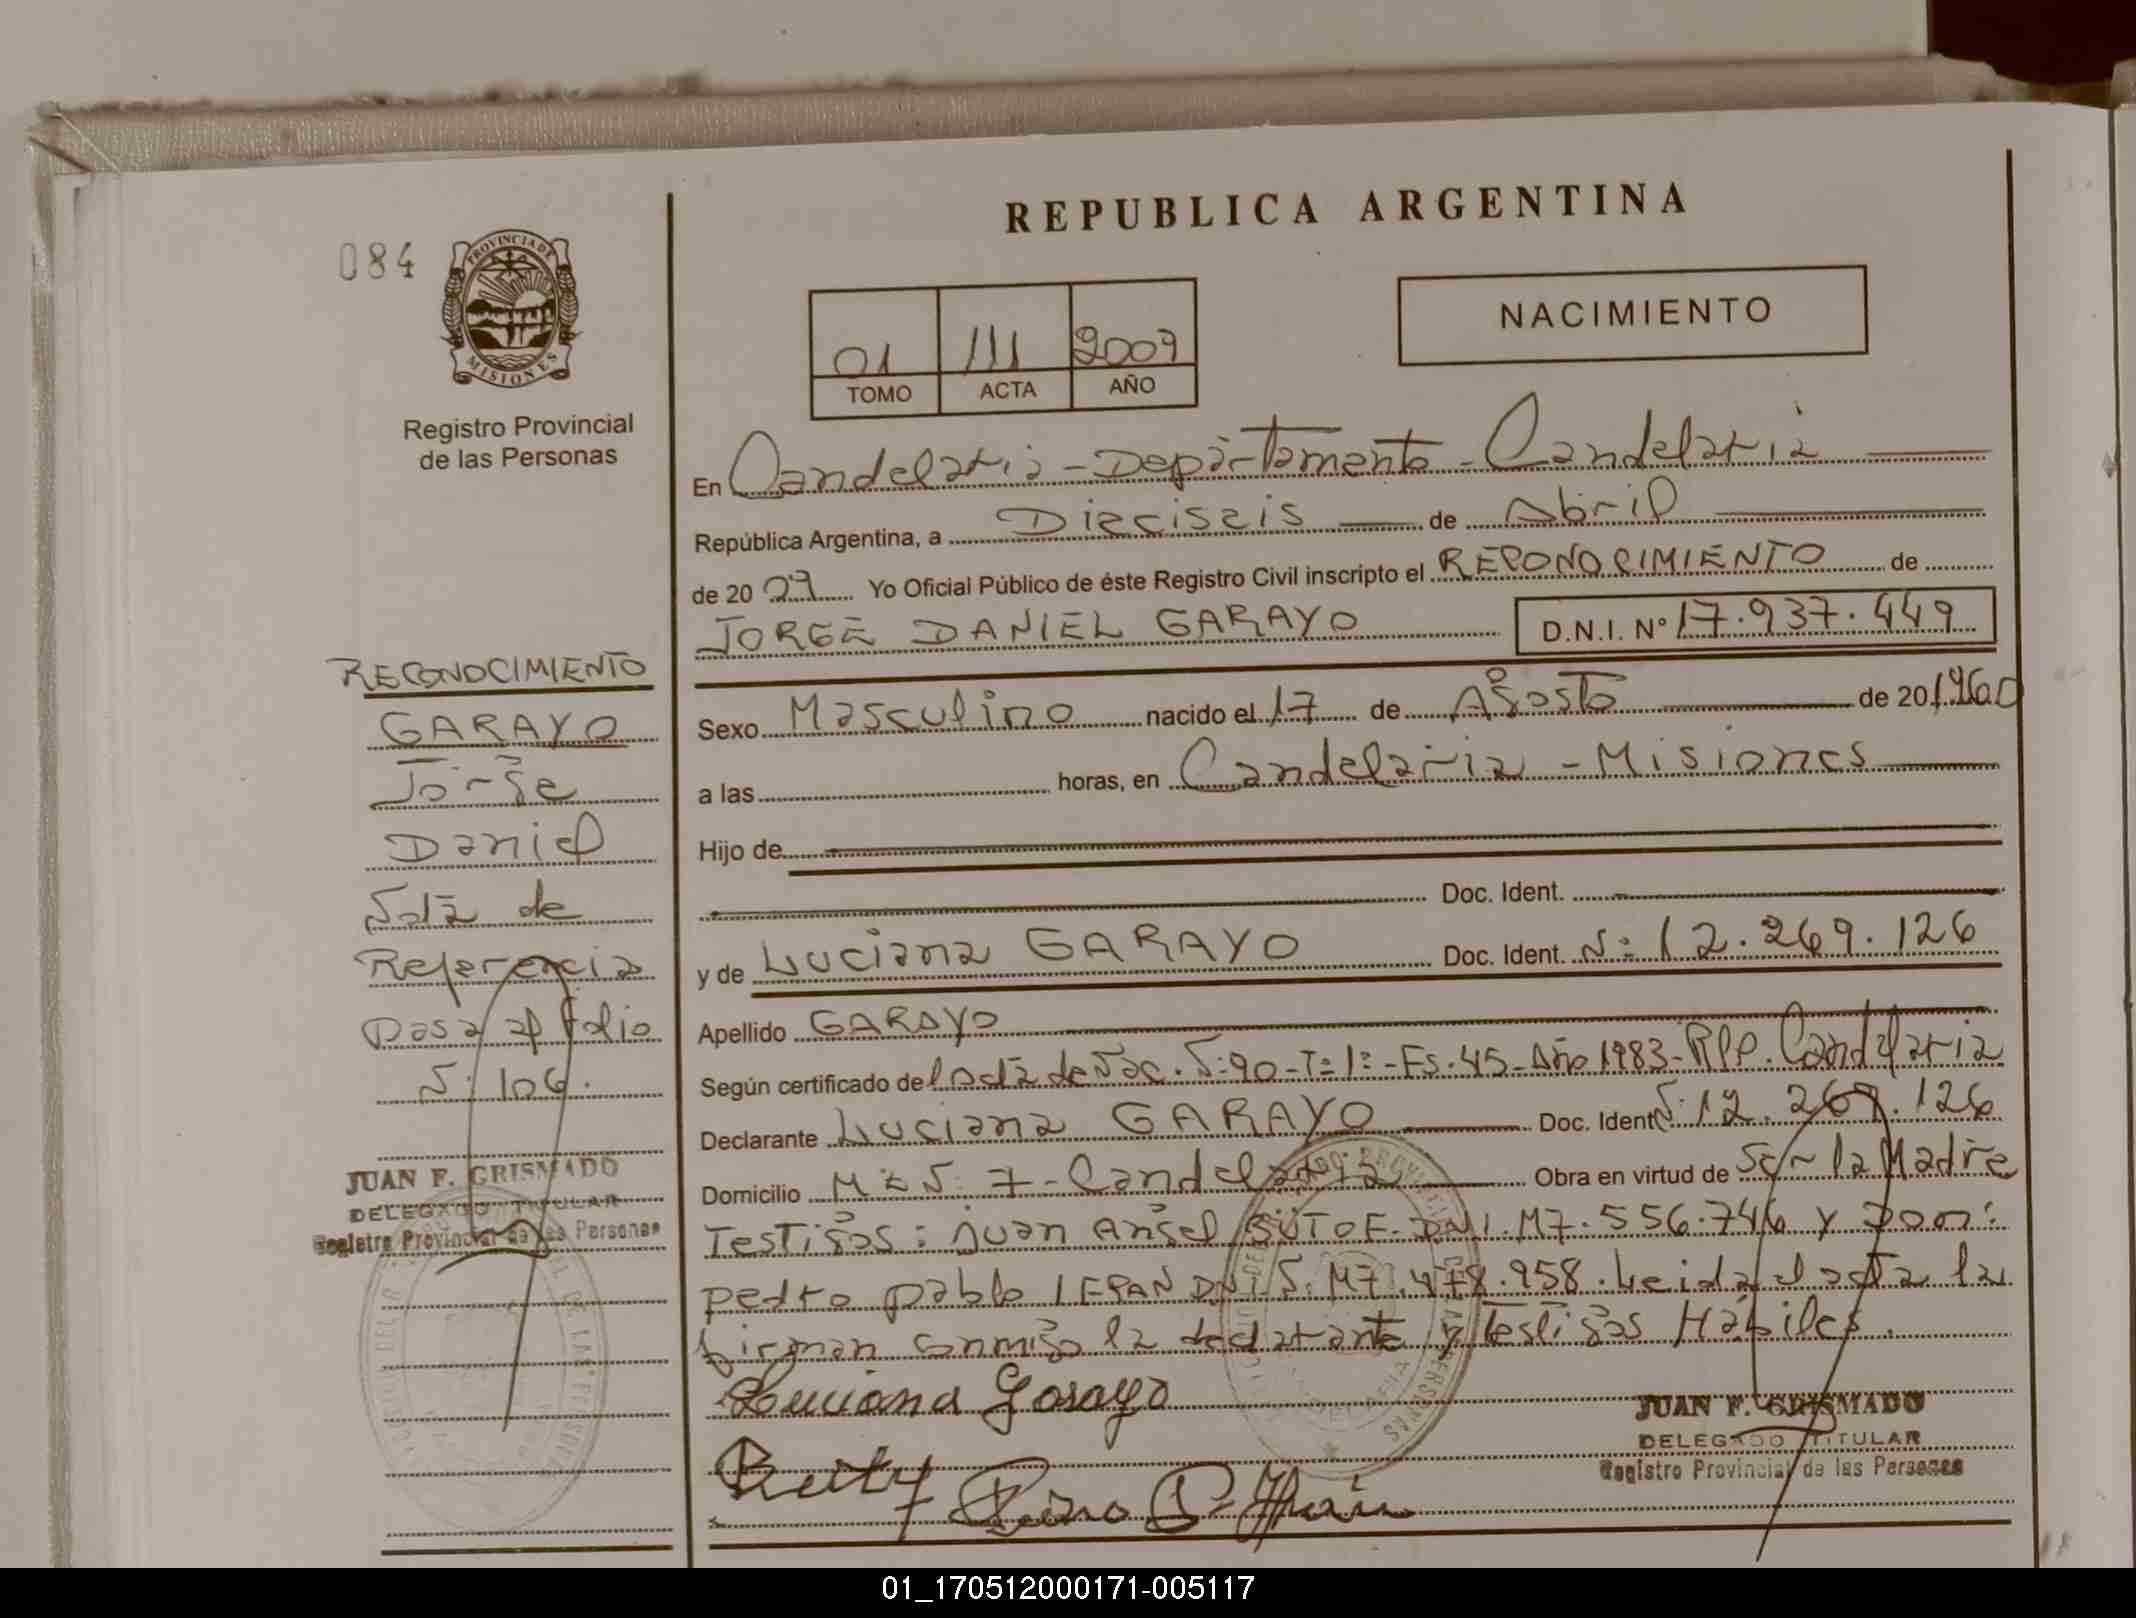 REPUBLICA ARGENTINA
084
PROVINCIA DE
MISIONES
Registro Provincial
de las Personas
NACIMIENTO
01 111 2009
TOMO ACTA AÑO
En Candelaria - Departamento - Candelaria
República Argentina, a Dieciseis de Abril
de 20 09 Yo Oficial Público de éste Registro Civil inscripto el RECONOCIMIENTO de
JORGE DANIEL GARAYO D.N.I. Nº 17.937.449
Sexo Masculino nacido el 17 de Agosto de 20 1960
a las horas, en Candelaria - Misiones
Hijo de
Doc. Ident.
y de Luciana GARAYO Doc. Ident. N: 12.269.126
Apellido GARAYO
Según certificado de l acta de Nac. N: 90 - T: 1: - Fs. 45 - Año 1983 - RPP. Candelaria
Declarante Luciana GARAYO Doc. Ident N: 12.269.126
Domicilio Mz N: 7 - Candelaria Obra en virtud de Ser la Madre
Testigos: Juan Angel DNI. M7.556.746 y Don:
pedro pablo DNI N: M7.478.958. Leida el acta la
firman conmigo la declarante y Testigos Hábiles.
Luciana Garayo
JUAN F. GRISMADO
DELEGADO TITULAR
Registro Provincial de las Personas
RECONOCIMIENTO
GARAYO
Jorge
Daniel
Nota de
Referencia
pasa al folio
N: 106.
JUAN F. GRISMADO
DELEGADO TITULAR
Registro Provincial de las Personas
01_170512000171-005117